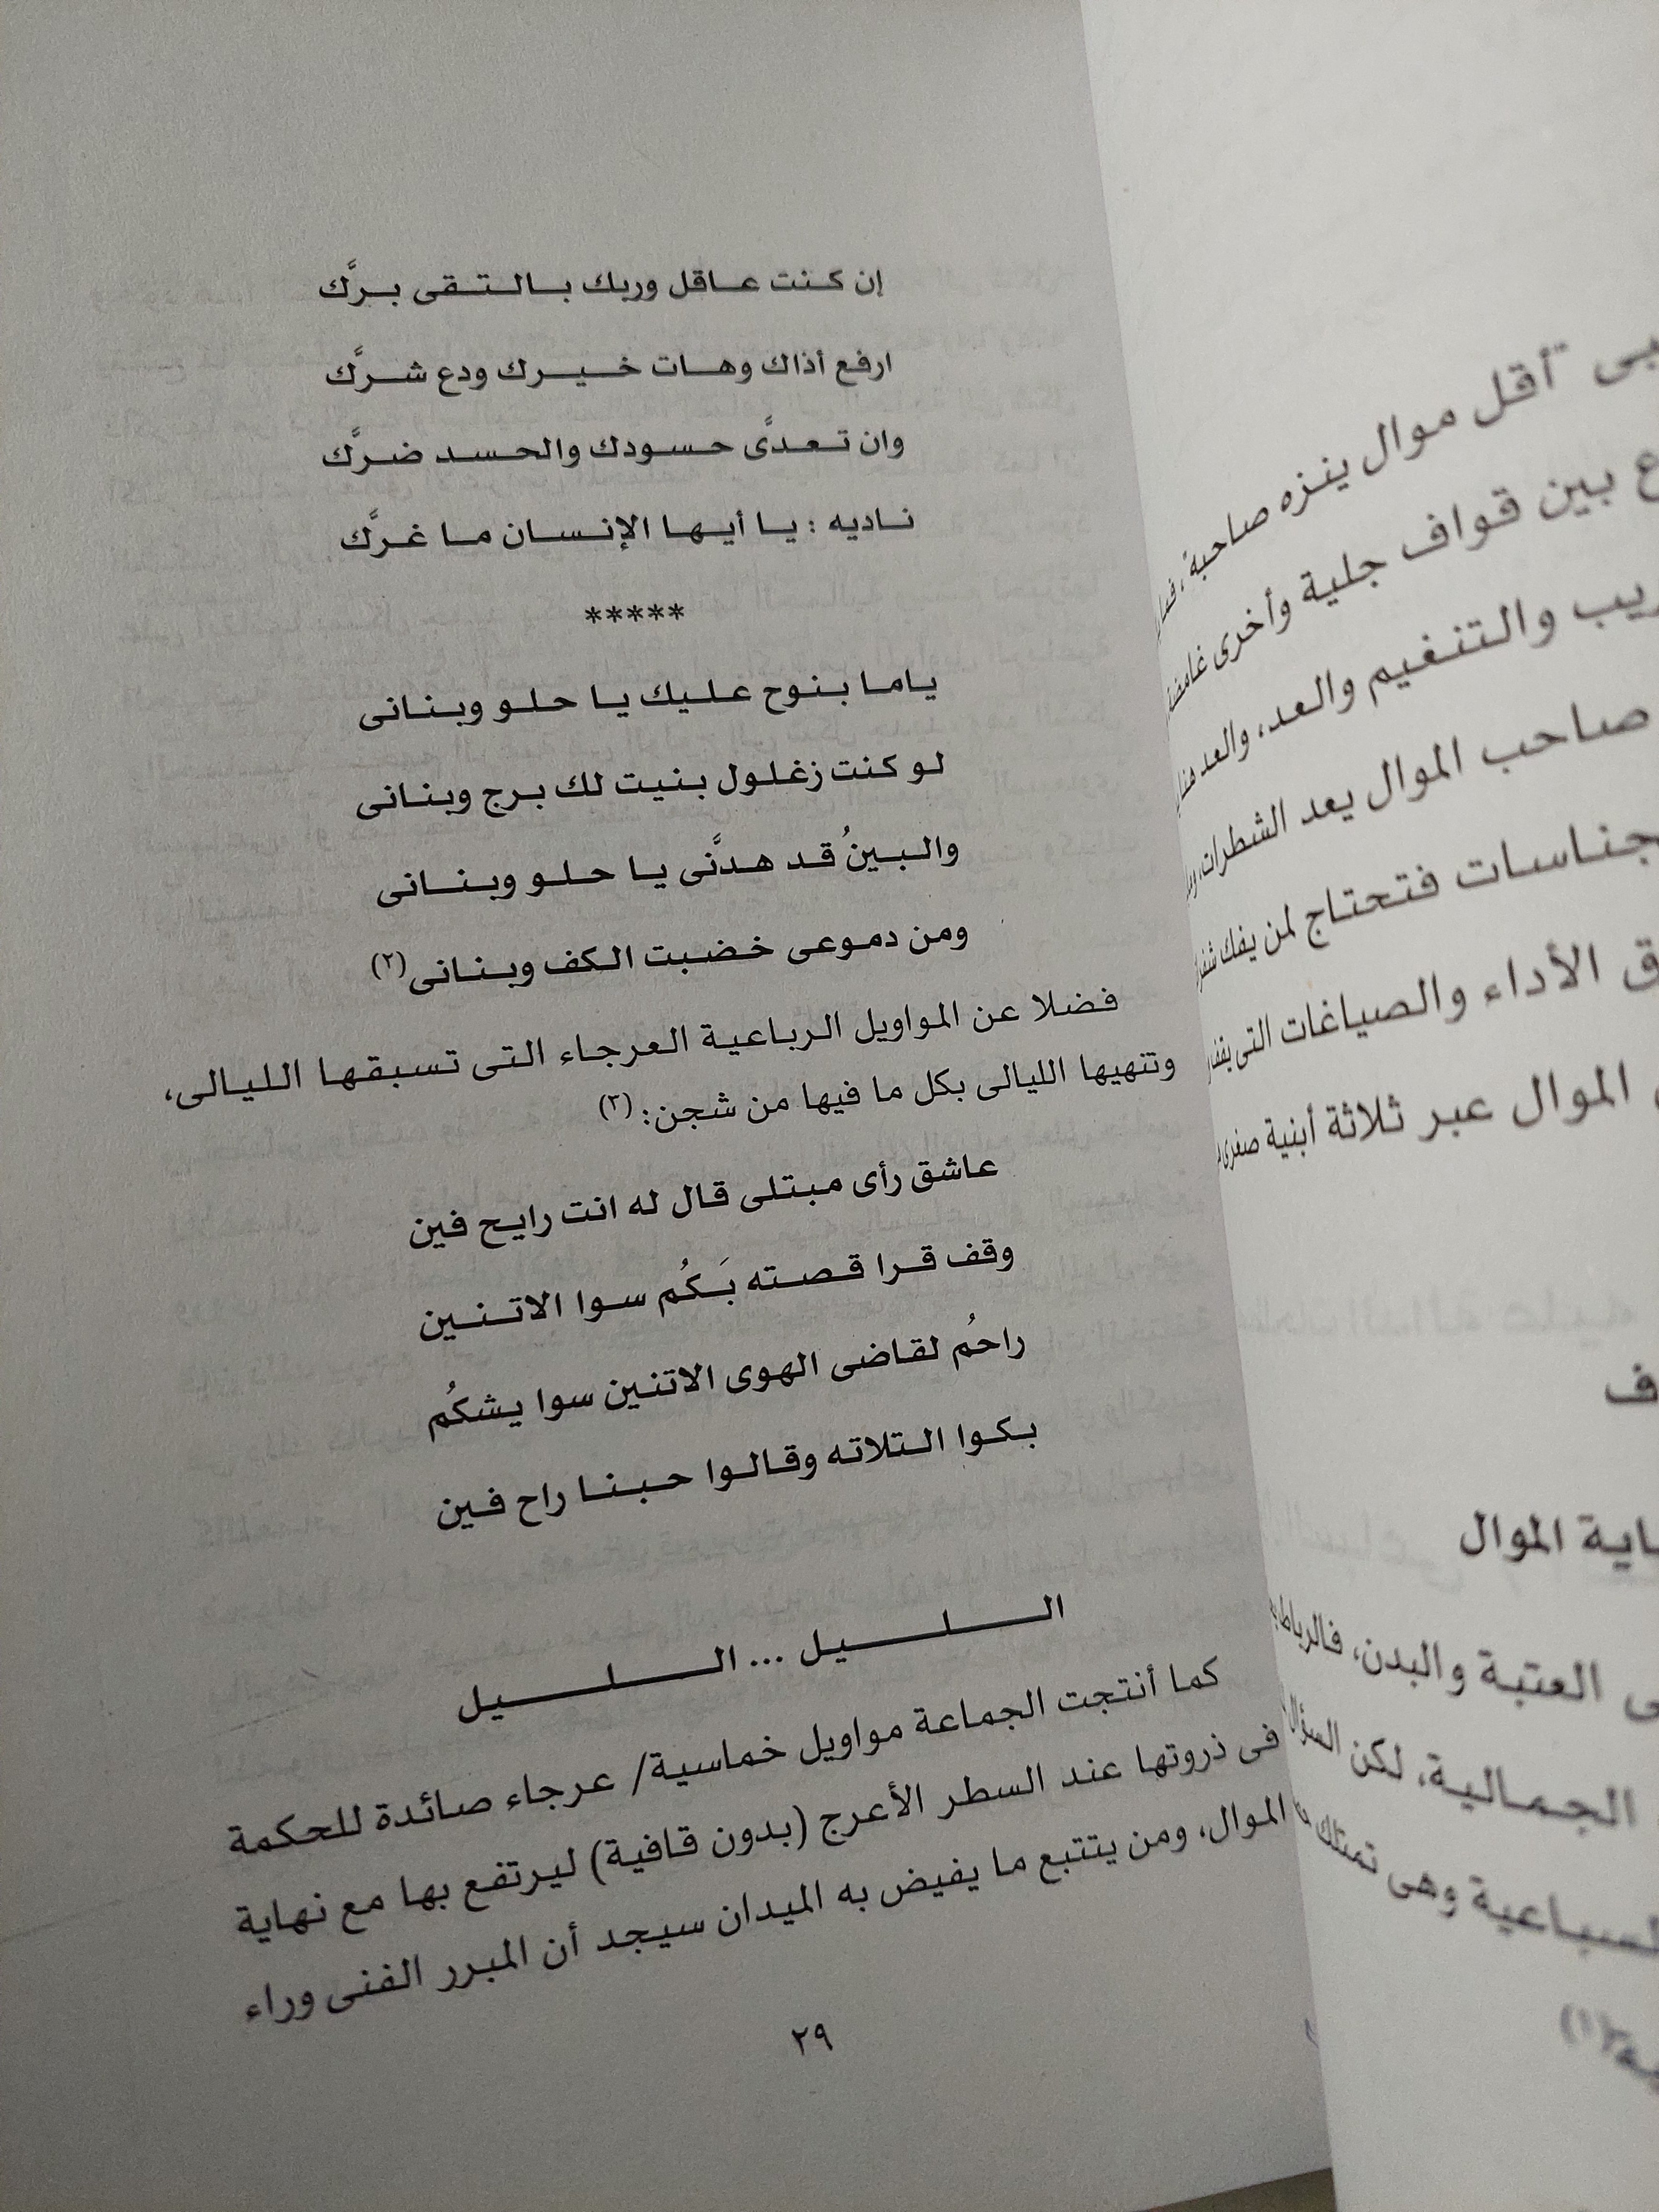 إن كنت عاقل وربك بالتقى برَّك
ارفع أذاك وهات خيرك ودع شرَّك
وان تعدَّى حسودك والحسد ضرَّك
ناديه : يا أيها الإنسان ما غرَّك
*****
ياما بنوح عليك يا حلو وبنانى
لو كنت زغلول بنيت لك برج وبنانى
والبينُ قد هدَّنى يا حلو وبنانى
ومن دموعى خضبت الكف وبنانى(٢)
فضلا عن المواويل الرباعية العرجاء التى تسبقها الليالى،
وتنهيها الليالى بكل ما فيها من شجن: (٣)
عاشق رأى مبتلى قال له انت رايح فين
وقف قرا قصته بَكُم سوا الاتنين
راحُم لقاضى الهوى الاتنين سوا يشكُم
بكوا التلاته وقالوا حبنا راح فين
الليل ... الليل
كما أنتجت الجماعة مواويل خماسية/ عرجاء صائدة للحكمة
فى ذروتها عند السطر الأعرج (بدون قافية) ليرتفع بها مع نهاية
الموال، ومن يتتبع ما يفيض به الميدان سيجد أن المبرر الفنى وراء
٢٩
أقل موال ينزه صاحبه
بين قواف جلية وأخرى
والتنغيم والعد، والعد
صاحب الموال يعد الشطرات،
فتحتاج لمن يفك
الأداء والصياغات التى
الموال عبر ثلاثة أبنية
الموال
العتبة والبدن،
الجمالية، لكن
وهى تمتلك
(١)